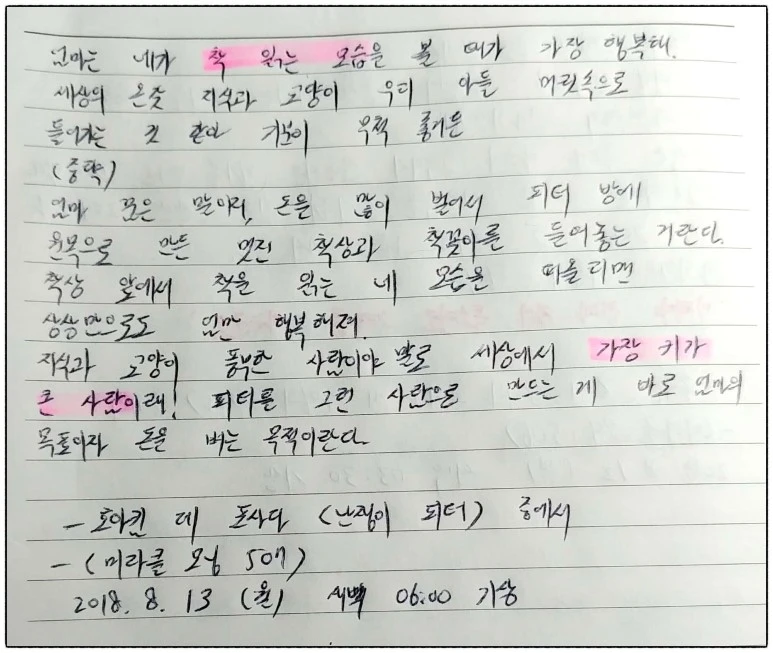 엄마는 네가 책 읽는 모습을 볼 때가 가장 행복해.
세상의 온갖 지식과 교양이 우리 아들 머릿속으로
들어가는 것 같아 기분이 무척 좋거든
(중략)
엄마 꿈은 말이지, 돈을 많이 벌어서 피터 방에
원목으로 만든 멋진 책상과 책꽂이를 들여놓는 거란다.
책상 앞에서 책을 읽는 네 모습을 떠올리면
상상만으로도 엄만 행복해져.
지식과 교양이 풍부한 사람이야 말로 세상에서 가장 키가
큰 사람이래! 피터를 그런 사람으로 만드는 게 바로 엄마의
목표이자 돈을 버는 목적이란다.
- 호아킴 데 포사다 (난쟁이 피터) 중에서
- (미라클 모닝 50일)
2018. 8. 13 (월) 새벽 06:00 기상